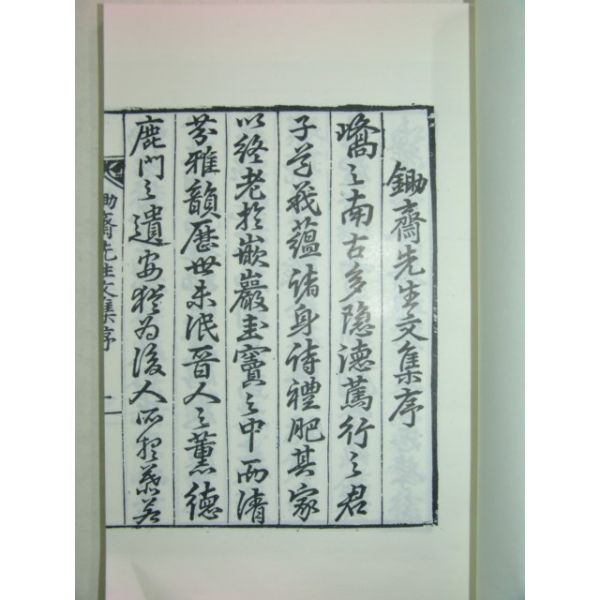 鋤齋先生文集序
嶠之南古多隐德篤行之君
子道義蘊諸身詩禮肥其家
以終老於嵌巖圭竇之中而清
芬雅韻歷世未泯晉人之薰德
鹿門之遺安猶為後人所想慕若
鋤齋先生文集序
一